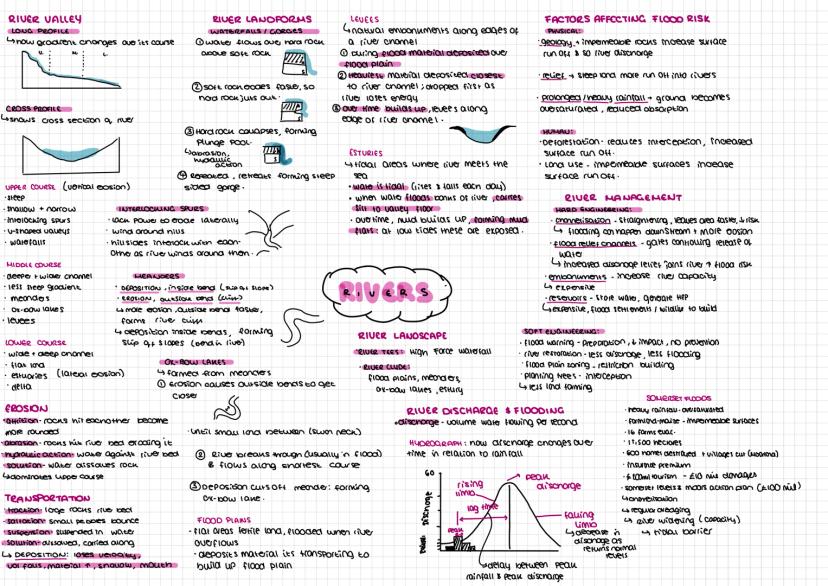 RIVER VALLEY
LONG PROFILE
↳how gradient changes over its course
U M L
CROSS PROFILE
↳shows cross section of river
UPPER COURSE (vertical erosion)
· steep
· shallow + narrow
· interlocking spurs
· v-shaped valleys
· waterfalls
INTERLOCKING SPURS
· lack power to erode laterally
· wind around hills
· hillsides interlock with each-
other as river winds around them.
MIDDLE COURSE
· deeper + wider channel
· less steep gradient
· meanders
· ox-bow lakes
· levees
MEANDERS
· DEPOSITION, inside bend (slip off slope)
· EROSION, outside bend (cliffs)
↳ more erosion, outside bend faster,
forms river cliffs
↳ deposition inside bends, forming
slip off slopes (bend in river)
LOWER COURSE
· wide + deep channel
· flat land
· estuaries (lateral erosion)
· delta
OX-BOW LAKES
↳formed from meanders
① erosion causes outside bends to get
closer
· until small land between (swan neck)
② River breaks through (usually in flood)
& flows along shortest course
③ DEPOSITION cuts off meander: forming
ox-bow lake.
EROSION
· attrition- rocks hit eachother become
more rounded
· abrasion- rocks hit river bed eroding it
· hydraulic action- water against river bed
· solution- water dissolves rock
↳dominates upper course
TRANSPORTATION
· traction: large rocks river bed
· saltation: small pebbles bounce
· suspension: suspended in water
· solution: dissolved, carried along
↳ DEPOSITION: loses velocity,
vol falls, material ↑, shallow, mouth
FLOOD PLAINS
· flat areas fertile land, flooded when river
overflows
· deposits material its transporting to
build up flood plain
RIVER LANDFORMS
WATERFALLS / GORGES
① water flows over hard rock
above soft rock
② soft rock erodes faster, so
hard rock juts out.
③ Hard rock collapses, forming
plunge pool.
↳abrasion,
hydraulic
action
④ Repeated, retreats forming steep
sided gorge.
LEVEES
↳natural embankments along edges of
a river channel
① during flood material deposited over
flood plain
② Heaviest material deposited closest
to river channel; dropped first as
river loses energy
③ over time builds up, levees along
edge of river channel.
ESTURIES
↳ tidal areas where river meets the
sea
· water is tidal (rises & falls each day)
· when water floods banks of river, carries
silt to valley floor
· overtime, mud builds up, forming mud
flats: at low tides these are exposed.
RIVERS
RIVER LANDSCAPE
· RIVER TEES: high force waterfall
· RIVER CLYDE:
flood plains, meanders,
ox-bow lakes, estury
RIVER DISCHARGE & FLOODING
· discharge - volume water flowing per second
HYDROGRAPH: how discharge changes over
time in relation to rainfall
60
Discharge
rising
limb
peak
discharge
lag time
peak
falling
limb
↳decrease in
discharge as
returns normal
levels
↳delay between peak
rainfall & peak discharge
FACTORS AFFECTING FLOOD RISK
PHYSICAL:
· geology → impermeable rocks increase surface
run off & so river discharge
· relief → steep land more run off into rivers
· prolonged/heavy rainfall → ground becomes
oversaturated, reduced absorption
HUMAN:
· Deforestation- reduces interception, increased
surface run off.
· land use - impermeable surfaces increase
surface run off.
RIVER MANAGEMENT
HARD ENGINEERING:
· channelisation - straightening, leaves area faster, ↓ risk
↳ flooding can happen downstream + more erosion
· flood relief channels - gates controlling release of
water
↳ increased discharge relief joins river → flood risk
· embankments - increase river capacity
↳ expensive
· reservoirs - store water, generate HEP
↳expensive, flood settlements / wildlife to build
SOFT ENGINEERING:
· flood warning - preparation, ↓ impact, no prevention
· river restoration - less discharge, less flooding
· flood plain zoning - restriction building
· planting trees - interception
↳ less land farming
SOMERSET FLOODS
· heavy rainfall - oversaturated
· farmland-maize - impermeable surfaces
· 16 farms evac.
· 11,500 hectares
· 600 homes destroyed + villages cut
· insurance premium
· tourism - £10 mil damages
· somerset levels & moors action plan (£100 mil)
↳ regular dredging
↳ river widening (capacity)
↳ tidal barrier